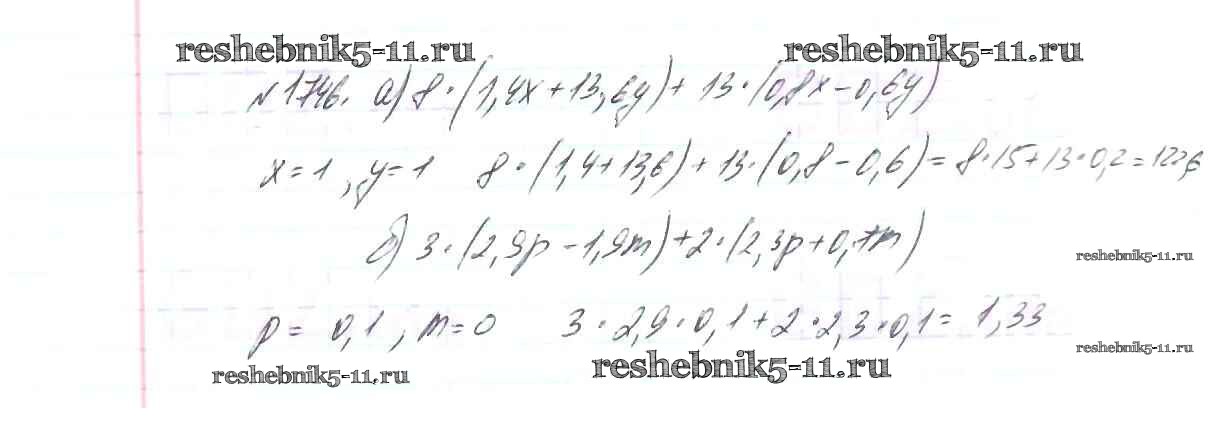 reshebnik5-11.ru reshebnik5-11.ru
№1746. а) 8·(1,4x+13,6y)+13·(0,8x-0,6y)
x=1, y=1 8·(1,4+13,6)+13·(0,8-0,6)=8·15+13·0,2=122,6
б) 3·(2,9p-1,9m)+2·(2,3p+0,7m)
reshebnik5-11.ru
p=0,1, m=0 3·2,9·0,1+2·2,3·0,1=1,33
reshebnik5-11.ru
reshebnik5-11.ru reshebnik5-11.ru